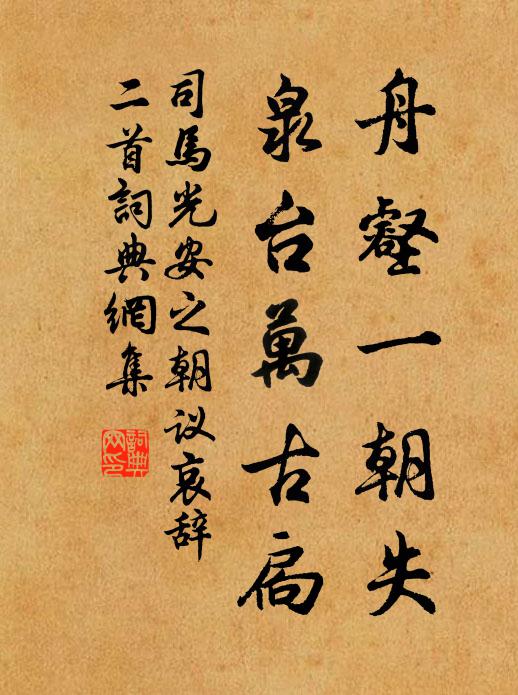 舟壑一朝失
泉台萬古扃
司馬光安之朝议哀辞
二首詞典網集
詞典
网印